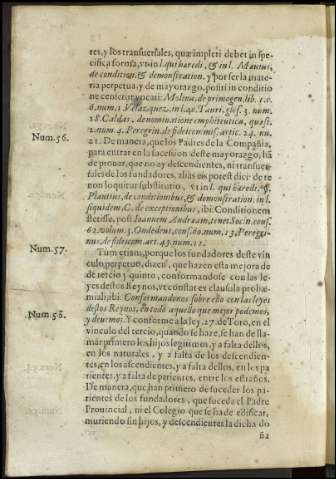 res, y los transuersales, quæ impleri debet in spe-
cifica forma, vt in l. qui hæredi, & in l. Mæuius,
de condition. & demonstration. y por ser la mate-
ria perpetua, y de mayorazgo, positi in conditio
ne censentur vocati: Molina, de primogen. lib. 1. c.
6. num. 1. Velazquez, in l. 40. Tauri. glos. 3. num.
28. Caldas, de nominatione emphiteutica, quæst.
2. num. 4. Peregrin. de fideicommiss. artic. 24. nu.
Num. 56.
21. De manera, que los Padres de la Compañia,
para entrar en la sucession deste mayorazgo, hã
de prouar, que no ay descendientes, ni transuer-
sales de los fundadores, alias eis potest dici de te
non loquitur substitutio, vt in l. qui hæredi, &
Plautius, de conditionibus, & demonstration. in l.
siquidem, C. de exceptionibus, ibi: Conditionem
stetisse, post Ioannem Andræam, tenet Socin. cons.
62. volum. 3. Ondedeus, cons. 60. num. 13, Peregri-
nus, de fideicom. art. 43. num. 12.
Num. 57.
Tum etiam, porque los fundadores deste vin
culo perpetuo, dizen, que hazen esta mejora de
de tercio y quinto, conformandose con las le-
yes destos Reynos, ve constar ex clausula proba-
mali, ibi: Conformandonos sobre ello con las leyes
destos Reynos, en todo aquello que mejor podemos,
Num. 58.
y deuemos. Y conforme a la ley, 27. de Toro, en el
vinculo del tercio, quando se haze, se han de lla-
mar primero los hijos legitimos, y a falta dellos,
en los naturales, y a falta de los descendien-
tes, en los ascendientes, y a falta dellos, en los pa
rientes, y a falta de parientes, entre los estraños.
De manera, que han primero de suceder los pa-
rientes de los fundadores, que suceda el Padre
Prouincial, ni el Colegio que se ha de edificar,
muriendo sin hijos, y descendientes la dicha do
ña